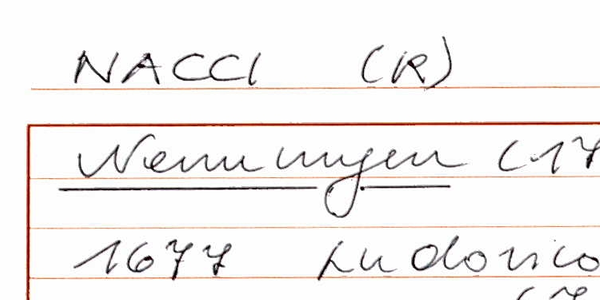 NACCI (R)
Nennungen (17
1677 Ludovico